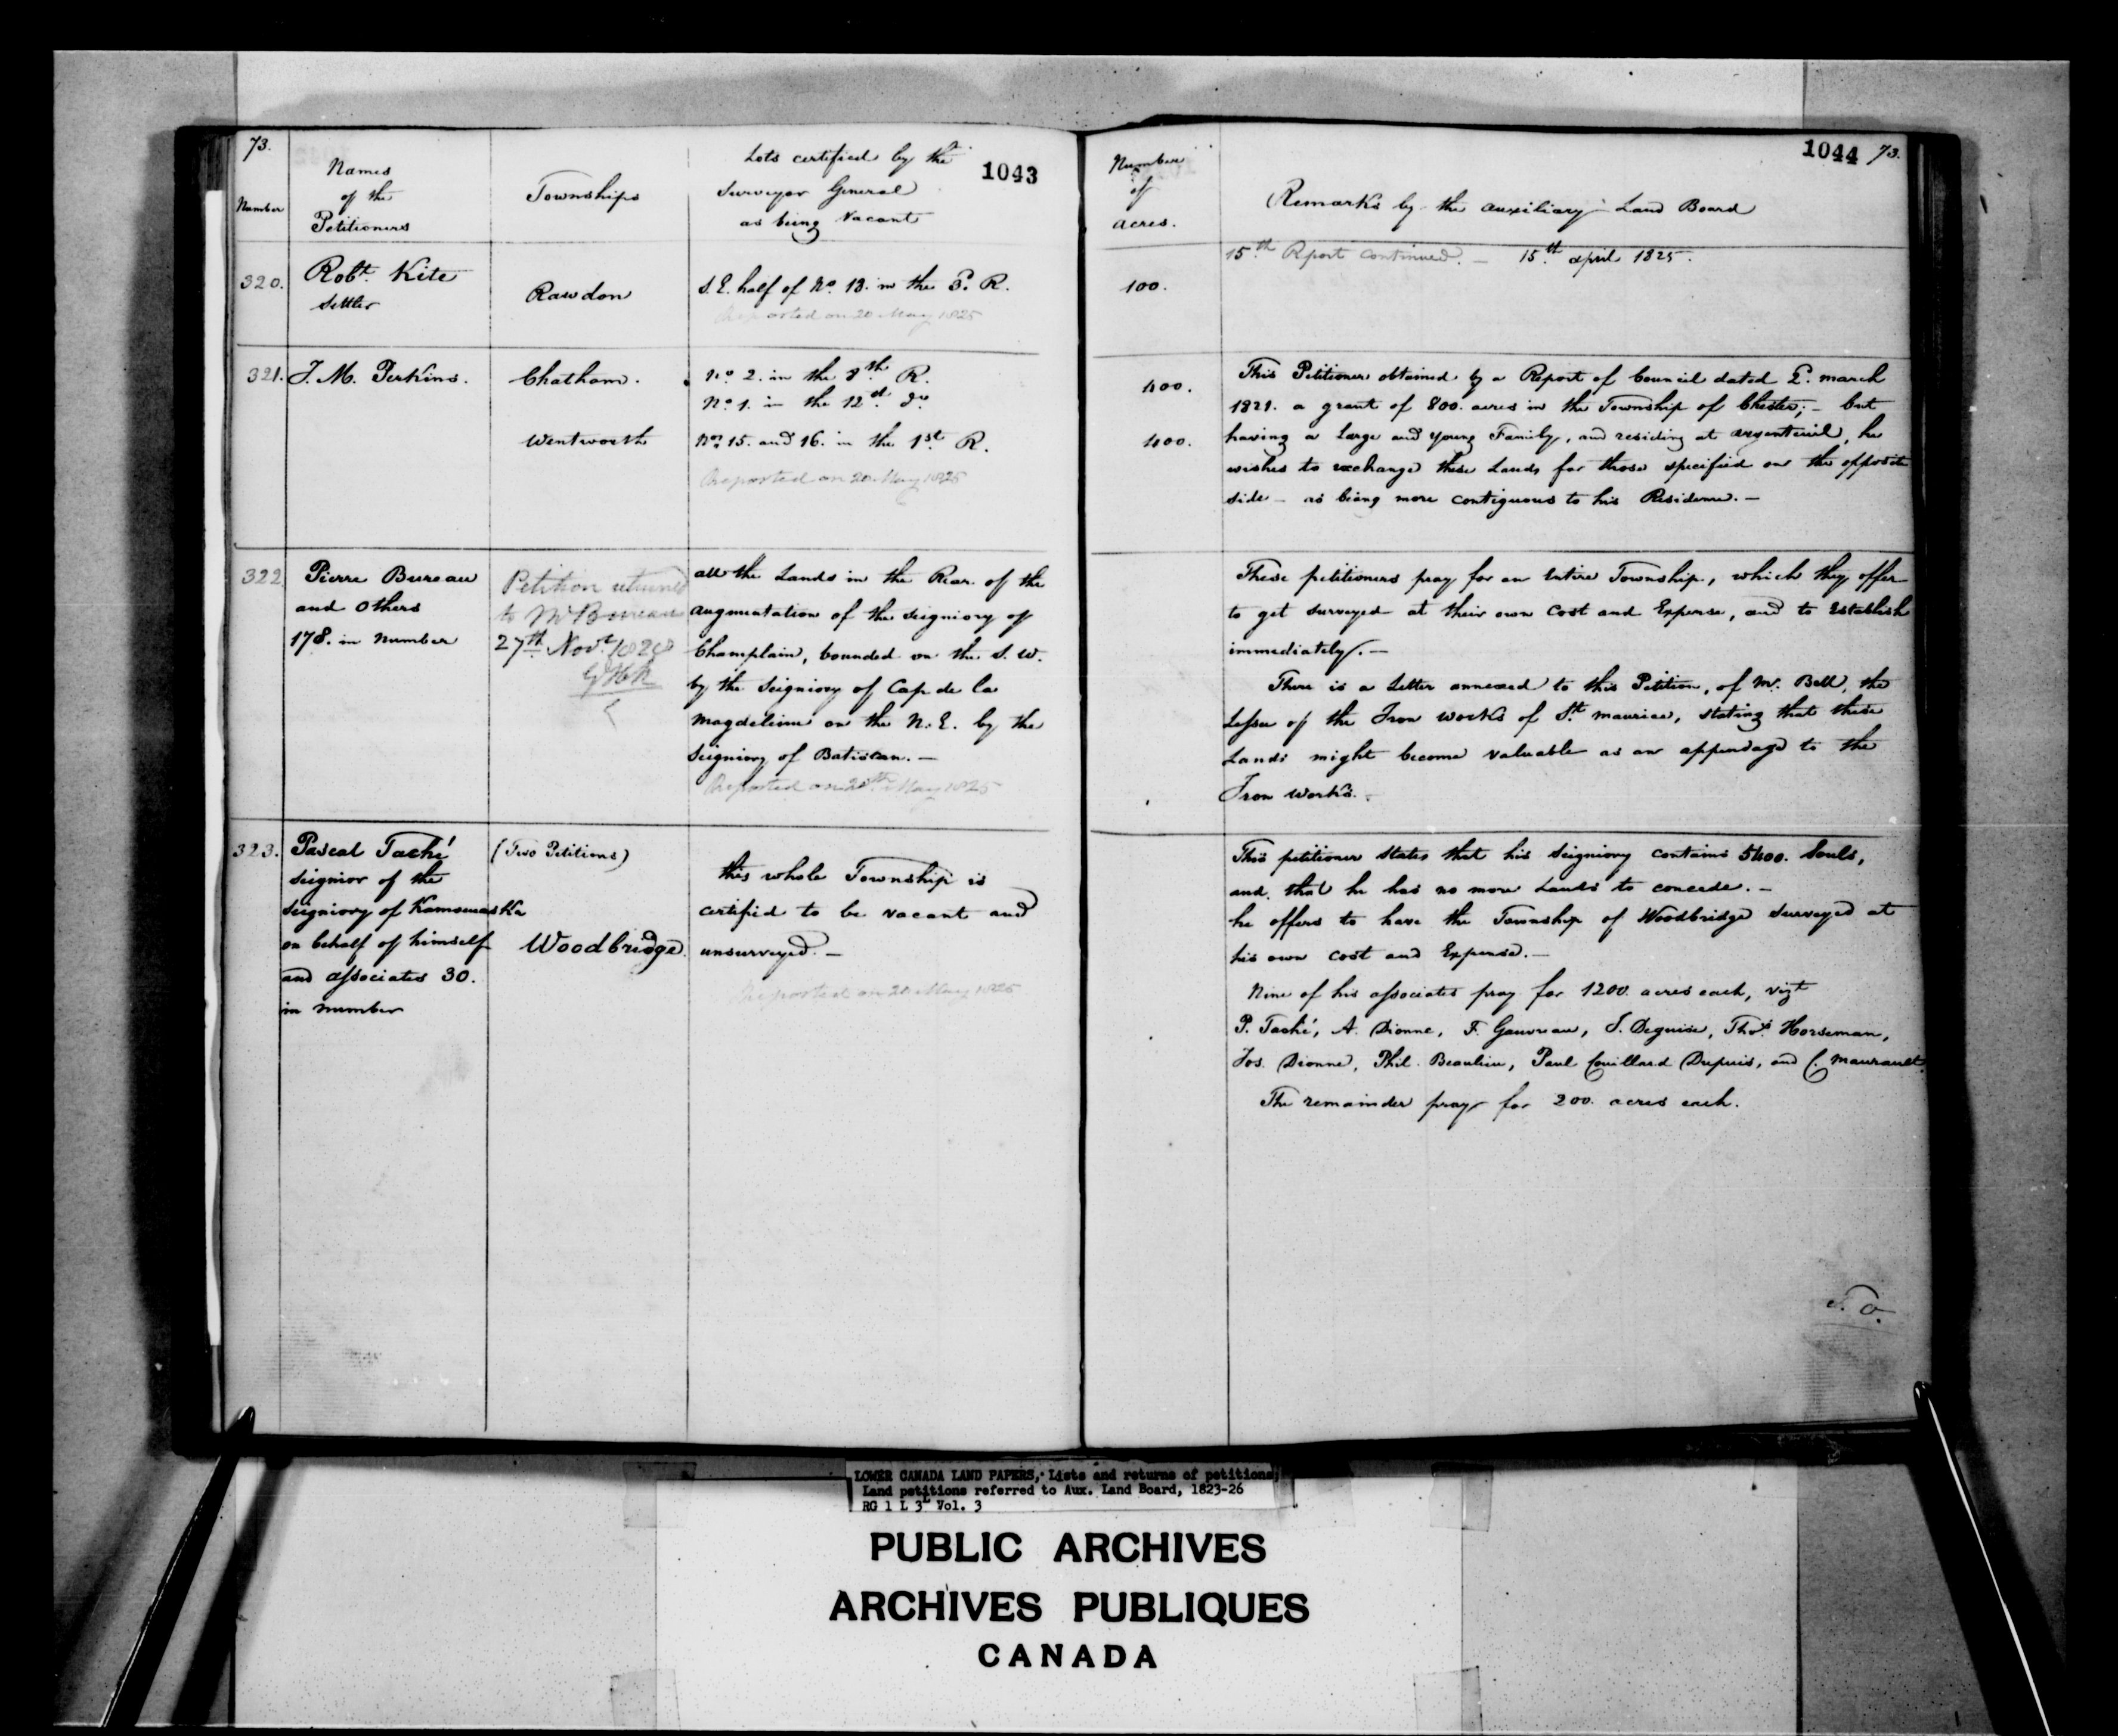 73.
1043
Number
Names
of the
Petitioners
Townships
Lots certified by the
Surveyor General
as being Vacant
320.
Robt. Kite
Settler
Rawdon
S.E. half of No. 13. in the 3. R.
Reported on 20 May 1825
321.
J. M. Perkins.
Chatham.
No. 2. in the 8th R.
No. 1. in the 12d. Do.
Wentworth
Nos. 15. and 16. in the 1st. R.
Reported on 20 May 1825
322.
Pierre Bureau
and Others
178. in Number
Petition returned
to Mr Bureau
27th Novr. 1828
all the Lands in the Rear of the
augmentation of the Seigniory of
Champlain, bounded on the S. W.
by the Seigniory of Cap de la
Magdeleine on the N. E. by the
Seigniory of Batiscan. —
Reported on 20th May 1825
323.
Pascal Taché
Seignior of the
Seigniory of Kamouraska
on behalf of himself
and associates 30.
in number
(Two Petitions)
Woodbridge.
this whole Township is
certified to be vacant and
unsurveyed. —
Reported on 20 May 1825
1044 73.
Number
of
acres.
Remarks by the Auxiliary Land Board
15th Report continued. — 15th. april 1825.
100.
400.
400.
This Petitioner obtained by a Report of Council dated 2. march
1821. a grant of 800. acres in the Township of Chester; — but
having a Large and young Family, and residing at argenteuil, he
wishes to exchange these Lands for those specified on the opposite
side — as being more contiguous to his Residence. —
These petitioners pray for an Entire Township, which they offer
to get surveyed at their own Cost and Expense, and to Establish
immediately. —
There is a Letter annexed to this Petition, of Mr. Bell, the
Lessee of the Iron Works of St. maurice, stating that these
Lands might become valuable as an appendage to the
Iron Works.
This petitioner states that his Seigniory contains 5400. Souls,
and that he has no more Lands to concede. —
he offers to have the Township of Woodbridge Surveyed at
his own Cost and Expense. —
Nine of his associates pray for 1200 acres each, vizt
P. Taché, A. Dionne, F. Gauvreau, J. Deguise, Thos. Horseman,
Jos. Dionne, Phil. Beaulieu, Paul Couillard Dupuis, and C. Maurault.
The remainder pray for 200. acres each.
T. O.
LOWER CANADA LAND PAPERS, Lists and returns of petitions;
Land petitions referred to Aux. Land Board, 1823-26
RG 1 L 3L Vol. 3
PUBLIC ARCHIVES
ARCHIVES PUBLIQUES
CANADA